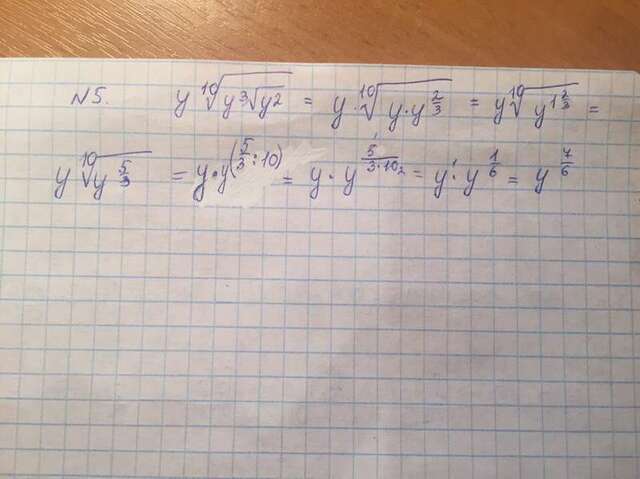 N5. y ¹⁰√(y ³√y²) = y · ¹⁰√(y · y^(2/3)) = y ¹⁰√(y^(1 2/3)) =
y ¹⁰√(y^(5/3)) = y · y^(5/3 : 10) = y · y^(5/(3·10)) = y¹ · y^(1/6) = y^(7/6)